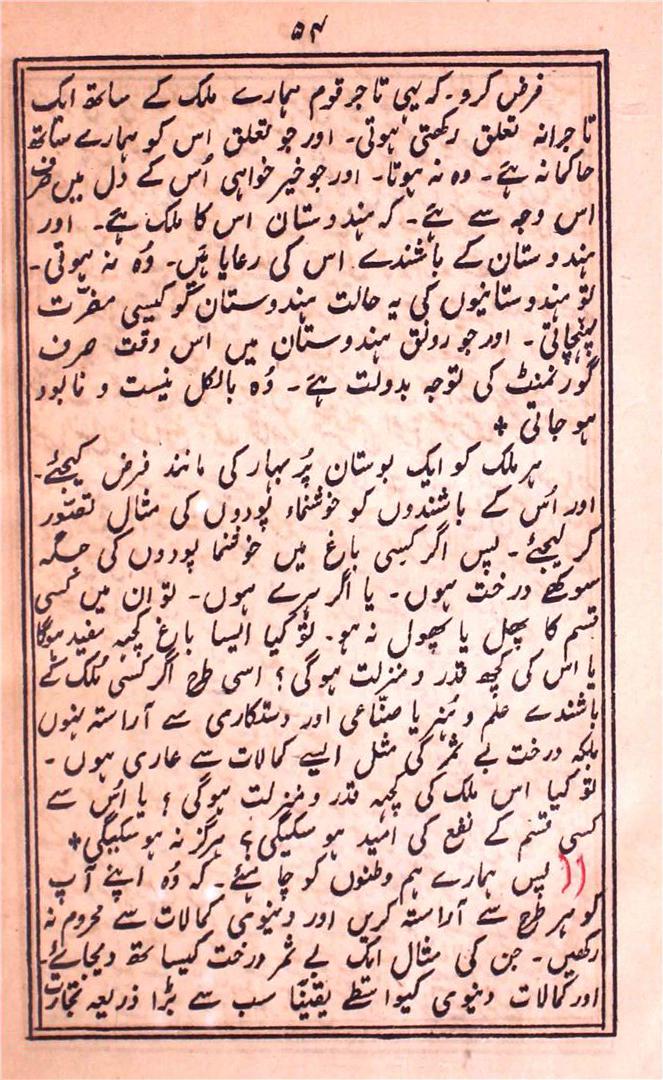 ۵۴
فرض کرو۔ کہ یہی تاجر قوم ہمارے ملک کے ساتھ ایک
تاجرانہ تعلق رکھتی ہوتی۔ اور جو تعلق اس کو ہمارے ساتھ
حاکمانہ ہے۔ وہ نہ ہوتا۔ اور جو خیر خواہی اُس کے دل میں صرف
اس وجہ سے ہے۔ کہ ہندوستان اس کا ملک ہے۔ اور
ہندوستان کے باشندے اس کی رعایا ہیں۔ وُہ نہ ہوتی۔
تو ہندوستانیوں کی یہ حالت ہندوستان کو کیسی مضرّت
پہنچاتی۔ اور جو رونق ہندوستان میں اس وقت صرف
گورنمنٹ کی توجہ بدولت ہے۔ وُہ بالکل نیست و نابود
ہو جاتی +
ہر ملک کو ایک بوستان پُر بہار کی مانند فرض کیجئے۔
اور اُس کے باشندوں کو خوشنماء پودوں کی مثال تصّور
کر لیجئے۔ پس اگر کسی باغ میں خوشنما پودوں کی جگہ
سوکھے درخت ہوں۔ یا اگر ہرے ہوں۔ تو ان میں کسی
قسم کا پھل یا پھول نہ ہو۔ تو کیا ایسا باغ کچہہ مفید ہوگا
یا اس کی کچھ قدر و منزلت ہوگی؟ اسی طرح اگر کسی مُلک کے
باشندے علم و ہُنر یا صنّاعی اور دستکاری سے آراستہ نہوں
بلکہ درخت بے ثمر کی مثل ایسے کمالات سے عاری ہوں۔
تو کیا اس ملک کی کچہہ قدر و منزلت ہوگی؟ یا اُس سے
کسی قسم کے نفع کی امید ہو سکیگی؟ ہرگز نہ ہو سکیگی+
(( پس ہمارے ہم وطنوں کو چاہئے۔ کہ وُہ اپنے آپ
کو ہر طرح سے آراستہ کریں اور دنیوی کمالات سے محروم نہ
رکھیں۔ جن کی مثال ایک بے ثمر درخت کیساتھ دیجائے۔
اور کمالات دنیوی کیواسطے یقینًا سب سے بڑا ذریعہ تجارت